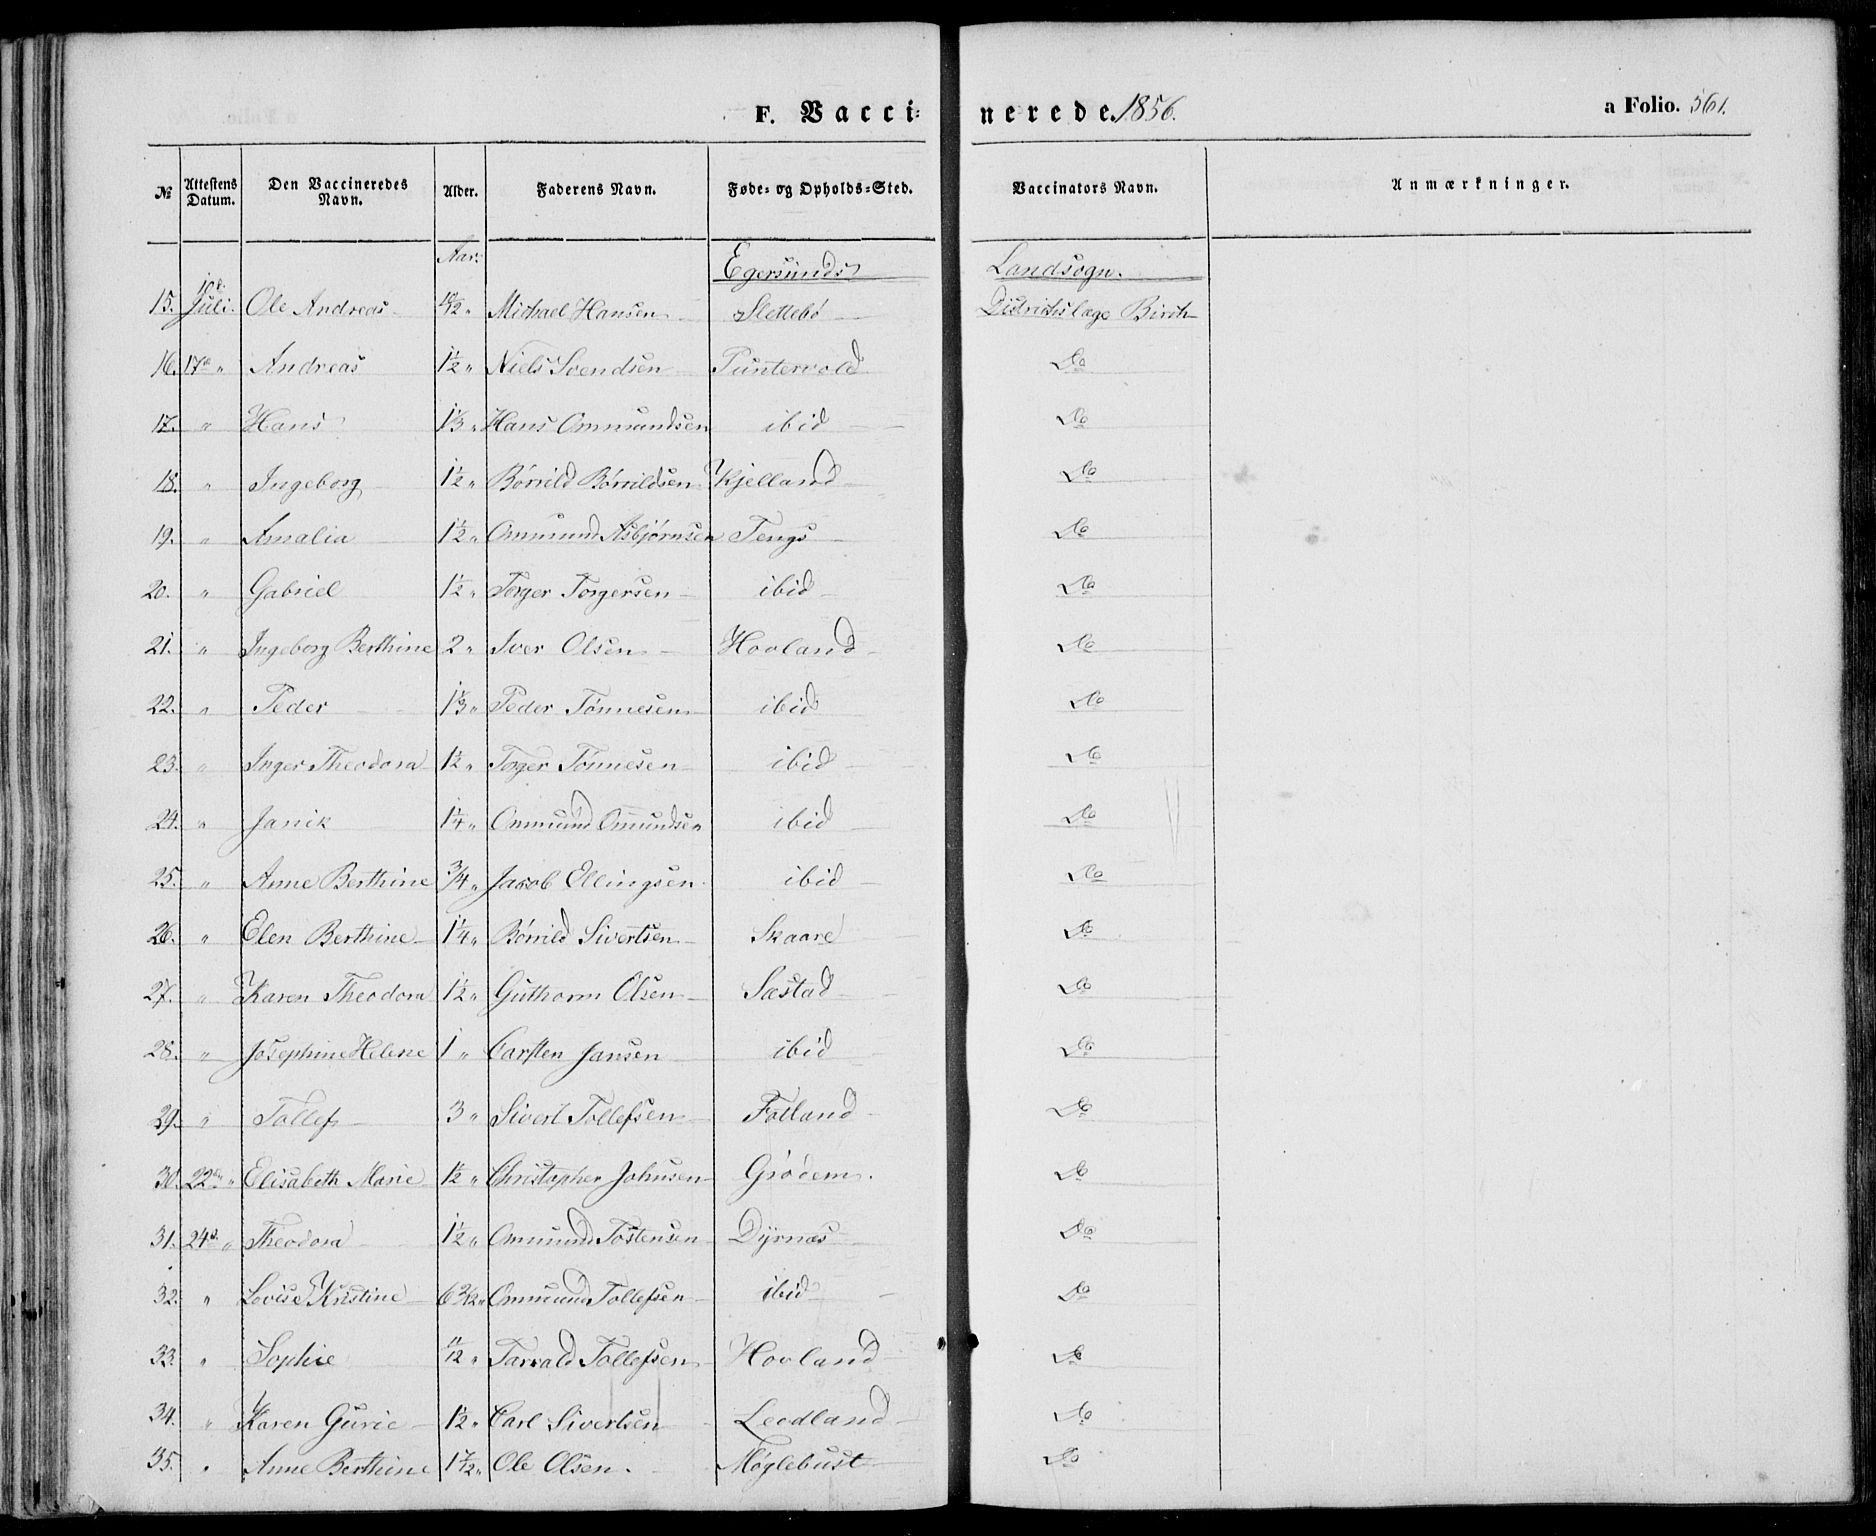 F. Vaccinerede. 1856. a Folio. 561.
№ Attestens Datum. Den Vaccineredes Navn. Alder. Faderens Navn. Føde- og Opholds-Sted. Vaccinators Navn. Anmærkninger.
Aar. Egersunds Landsogn.
15. 10de Juli. Ole Andreas Michael Hansen Slettebø Distriktslæge Birch
16. 17de " Andreas 1½ " Niels Svendsen Puntervold Do
17. " Hans 1⅓ " Hans Ommundsen ibid Do
18. " Ingeborg 1½ " Börrild Börrildsen Kjelland Do
19. " Amalia 1½ " Ommund Asbjørnsen Tengs Do
20. " Gabriel 1½ " Torger Torgersen ibid Do
21. " Ingeborg Berthine 2 " Iver Olsen Hovland Do
22. " Peder 1⅓ " Peder Tønnesen ibid Do
23. " Inger Theodora 1½ " Torger Tønnesen ibid Do
24. " Janik 1¼ " Ommund Omundsen ibid Do
25. " Anne Berthine ¾ " Jacob Ellingsen ibid Do
26. " Elen Berthine 1¼ " Börrild Sivertsen Skaare Do
27. " Karen Theodora 1½ " Guthorm Olsen Sæstad Do
28. " Josephine Helene 1 " Carsten Jansen ibid Do
29. " Tollef 3 " Sivert Tollefsen Fotland Do
30. 22de " Elisabeth Marie 1½ " Christopher Johnsen Grödem. Do
31. 24de " Theodora 1½ " Ommund Tostensen Dyrnæs Do
32. " Lovise Kristine Ommund Tollefsen ibid Do
33. " Sophie 11/12 " Tarrald Tollefsen Hovland Do
34. " Karen Gurie 1½ " Carl Sivertsen Leodland Do
35. " Anne Berthine 1 7/12 " Ole Olsen. Møglebust Do